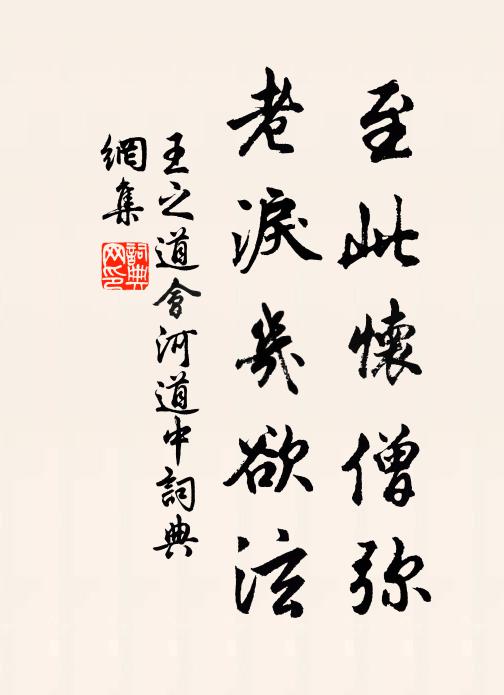 至此懷僧弥
老淚幾欲泫
王之道會河道中詞典
網集
詞典網印